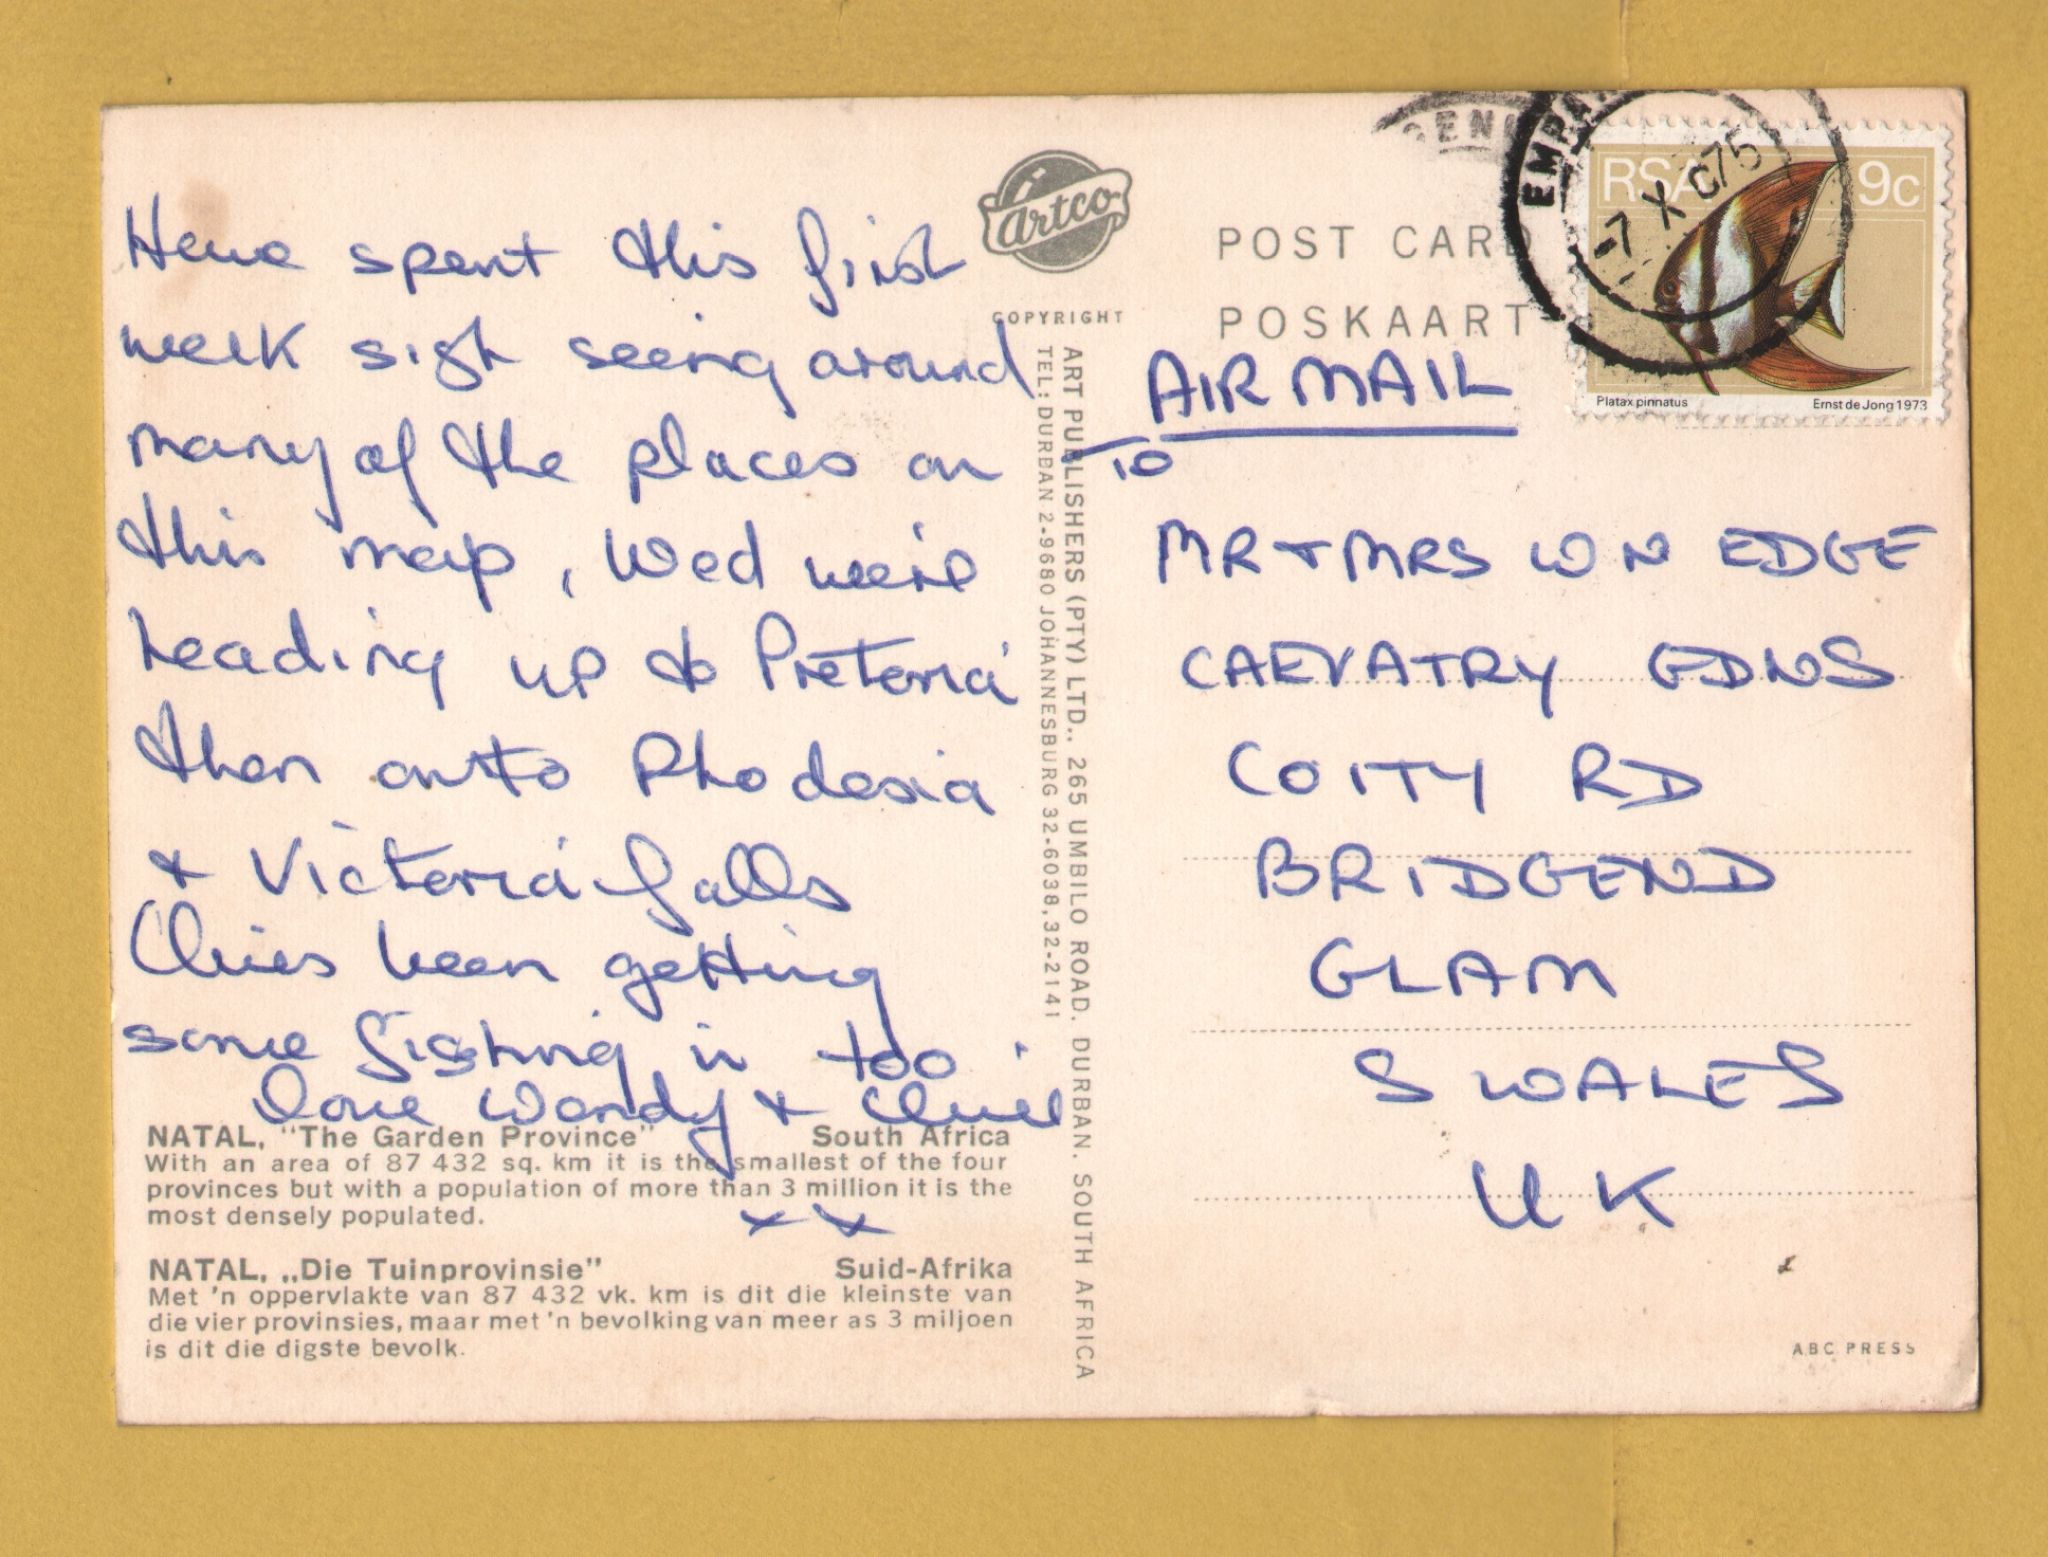 Have spent this first
week sigh seeing around
many of the places on
this map, Wed we're
heading up to Pretoria
then onto Rhodesia
& Victoria falls
been getting
some fishing in too.
love Wendy &
x x
NATAL, "The Garden Province" South Africa
With an area of 87 432 sq. km it is the smallest of the four
provinces but with a population of more than 3 million it is the
most densely populated.
NATAL, „Die Tuinprovinsie" Suid-Afrika
Met 'n oppervlakte van 87 432 vk. km is dit die kleinste van
die vier provinsies, maar met 'n bevolking van meer as 3 miljoen
is dit die digste bevolk.
Artco
COPYRIGHT
ART PUBLISHERS (PTY) LTD., 265 UMBILO ROAD. DURBAN. SOUTH AFRICA
TEL: DURBAN 2-9680 JOHANNESBURG 32-6038, 32-2141
POST CARD
POSKAART
RSA 9c
-7 X 75
Platax pinnatus Ernst de Jong 1973
AIR MAIL
TO
MR + MRS W N EDGE
GDNS
COITY RD
BRIDGEND
GLAM
S WALES
UK
ABC PRESS